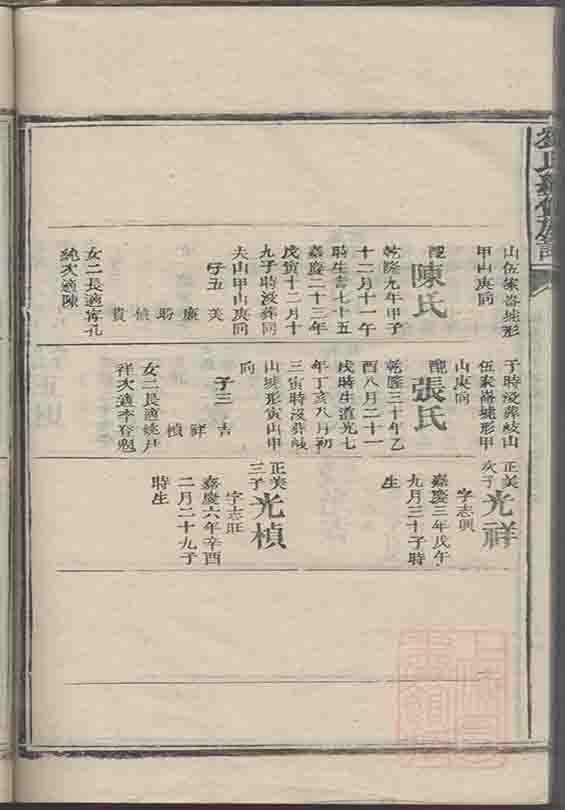 山伍家崙㘵形
甲山庚向
配
陳氏
乾隆九年甲子
十二月十一午
時生壽七十五
嘉慶二十三年
戊寅十二月十
九子時没葬同
夫山甲山庚向
子五 美 廣 貴
女二長適
純次適陳
子時没葬岐山
伍家崙㘵形甲
山庚向
配
張氏
乾隆三十年乙
酉八月二十一
戌時生道光七
年丁亥八月初
三寅時没葬
山㘵形寅山申
向
子三 吉 祥 楨
女二長適姚
祥次適李
正美
次子
光祥
字志興
嘉慶三年戊午
九月三十子時
生
正美
三子
光楨
字志旺
嘉慶六年辛酉
二月二十九子
時生